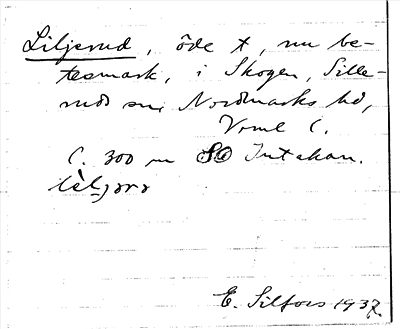 Liljerud, öde t, nu be-
tesmark, i Skogen, Sille-
ruds sn, Nordmarks hd,
Vrml C.
C. 300 m SO Intakan.
E. Silfors 1937.